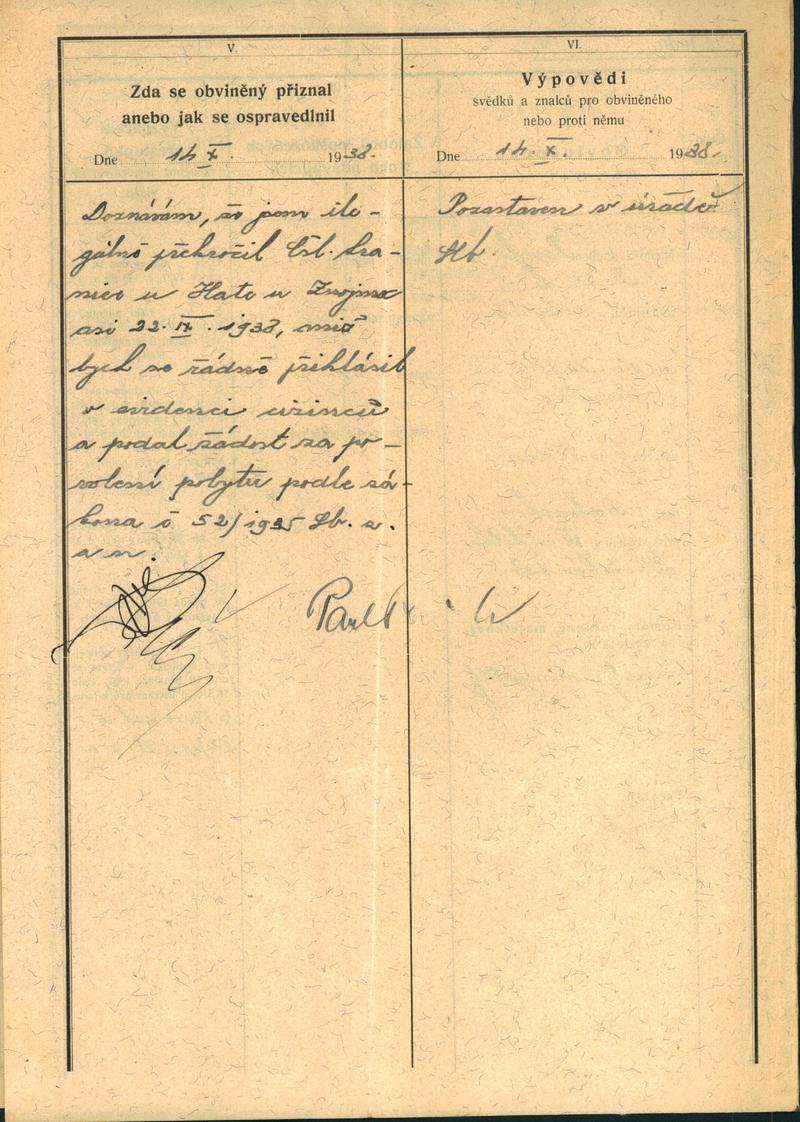 V.
Zda se obviněný přiznal
anebo jak se ospravedlnil
Dne 14 X. 1938.
Doznávám, že jsem ile-
gálně překročil čsl. hra-
nice u Hatě u Znojma
asi 22. IX. 1938, aniž
bych se řádně přihlásil
v evidenci cizinců
a podal žádost za po-
volení pobytu podle zá-
kona č 52/1935 Sb. z.
a n.
VI.
Výpovědi
svědků a znalců pro obviněného
nebo proti němu
Dne 14. X. 1938.
Pozastaven v úřadě